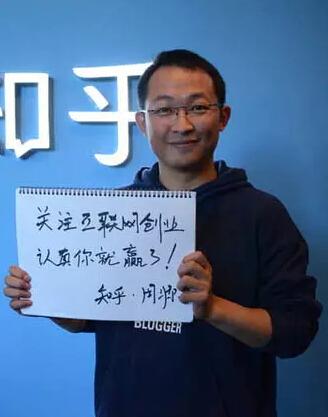 知乎
关注互联网创业
认真你就赢了！
知乎·周源
BLOGGER